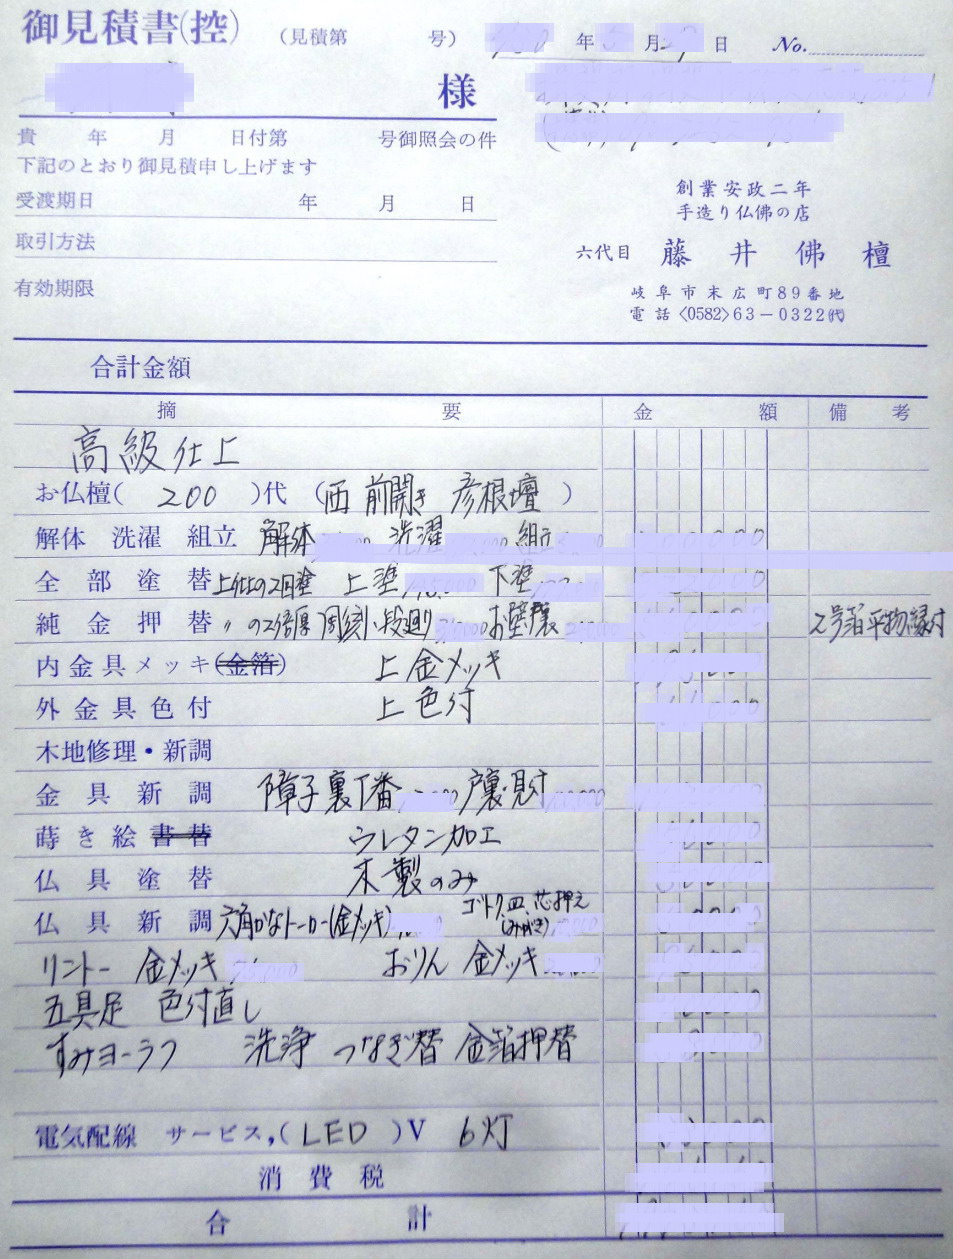 御見積書(控) (見積第 号) 年 月 日 No.
様
貴 年 月 日付第 号御照会の件
下記のとおり御見積申し上げます
受渡期日 年 月 日
取引方法
有効期限
創業安政二年
手造り仏佛の店
六代目 藤井佛檀
岐阜市末広町89番地
電話〈0582〉63-0322㈹
合計金額
摘 要 金 額 備 考
高級仕上
お仏檀( 200 )代 (西 前開き 彦根壇 )
解体 洗濯 組立 解体 洗濯 組立
全部塗替 上仕上の2回塗 上塗 下塗
純金押替 〃の2倍厚 周刻、段廻り お壁裏 2号箔平物縁付
内金具メッキ(金箔) 上金メッキ
外金具色付 上色付
木地修理・新調
金具新調 障子裏丁番 戸裏・見付
蒔き絵書替 ウレタン加工
仏具塗替 木製のみ
仏具新調 六角かなトーロー(金メッキ) ゴトク皿、芯押え (みがき)
リントー 金メッキ おりん 金メッキ
五具足 色付直し
すみヨーラク 洗浄 つなぎ替 金箔押替
電気配線 サービス,(LED)V 6灯
消費税
合計